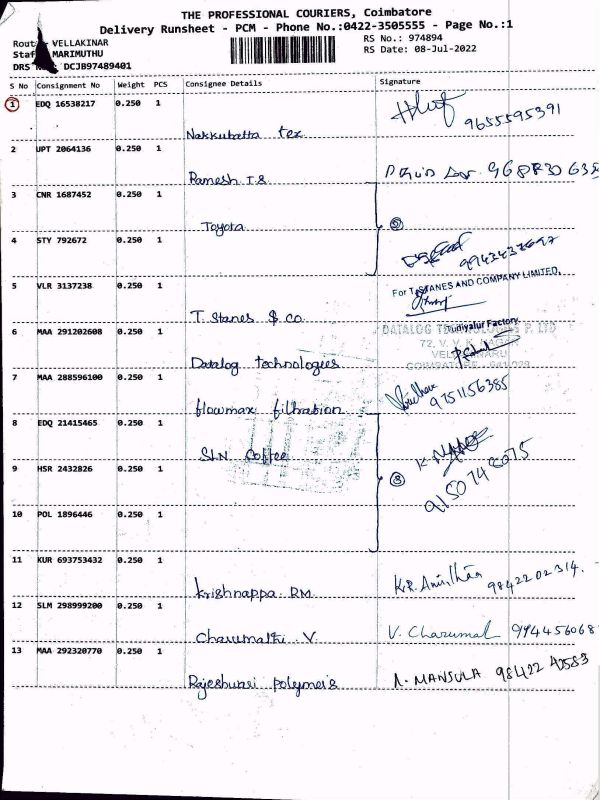 THE PROFESSIONAL COURIERS, Coimbatore
Delivery Runsheet - PCM - Phone No.:0422-3505555 - Page No.:1
VELLAKINAR
RS No.: 974894
Staf MARIMUTHU
RS Date: 08-Jul-2022
DRS DCJB97489401
S No Consignment No Weight PCS Consignee Details Signature
1 EDQ 16538217 0.250 1
Nakkubatta tex 9655595391
2 UPT 2064136 0.250 1
Ramesh I.S.
3 CNR 1687452 0.250 1
Toyota
4 STY 792672 0.250 1
5 VLR 3137238 0.250 1
For T.STANES AND COMPANY LIMITED,
T. Stanes & co
6 MAA 291202608 0.250 1
DATALOG TECHNOLOGIES P. LTD
Tudiyalur Factory.
72, V.
Datalog technologies
7 MAA 288596100 0.250 1
9751156385
flowmax filtration
8 EDQ 21415465 0.250 1
SLN Coffee
9 HSR 2432826 0.250 1
9150748075
10 POL 1896446 0.250 1
11 KUR 693753432 0.250 1
Krishnappa RM 9842202314.
12 SLM 298999200 0.250 1
Charumathi V V. Charumal 9944456068
13 MAA 292320770 0.250 1
Rajeshwari polymers MANSULA 98422 40583